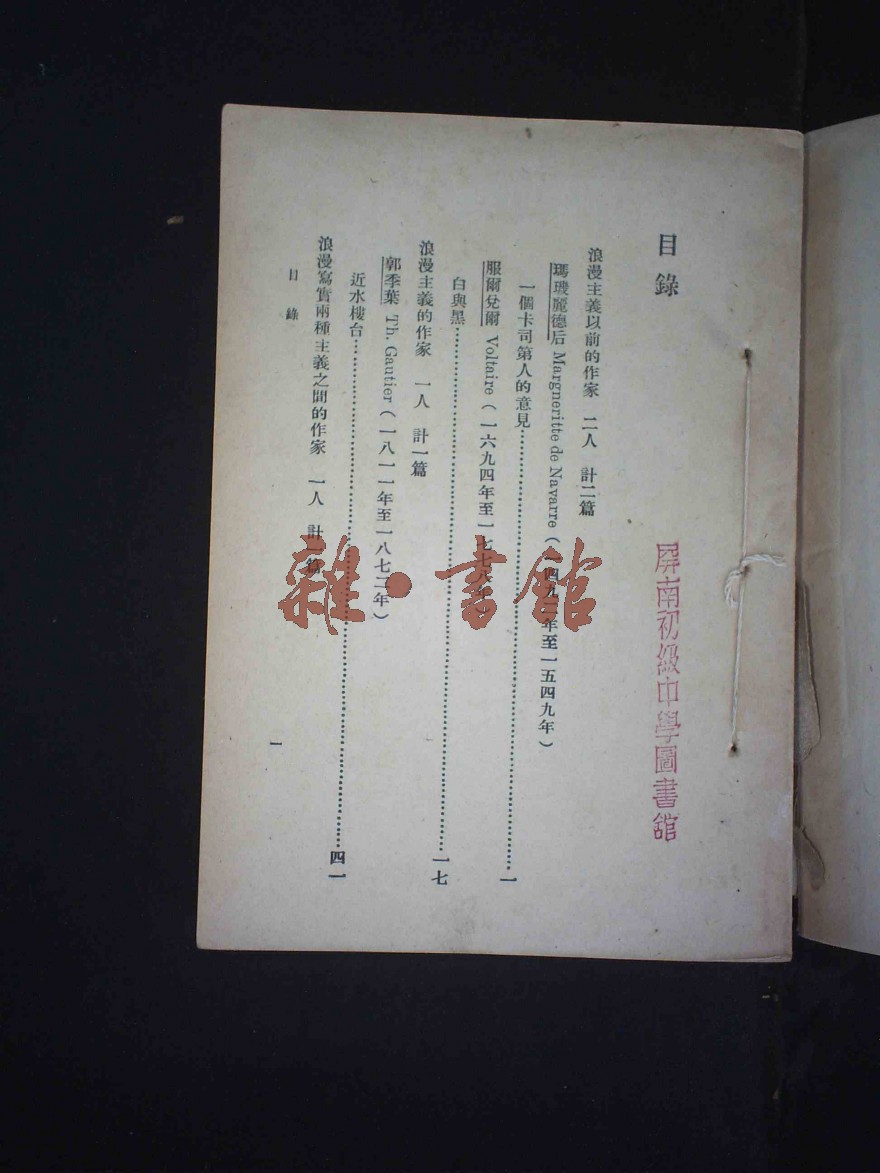 目錄
浪漫主義以前的作家 二人 計二篇
瑪璣麗德后 Margneritte de Navarre（一四九二年至一五四九年）
一個卡司第人的意見……一
服爾兌爾 Voltaire（一六九四年至一七七八年）
白與黑……一七
浪漫主義的作家 一人 計一篇
郭季葉 Th. Gautier（一八一一年至一八七二年）
近水樓台……四一
浪漫寫實兩種主義之間的作家 一人 計一篇
目錄
一
屏南初級中學圖書館
雜·書館